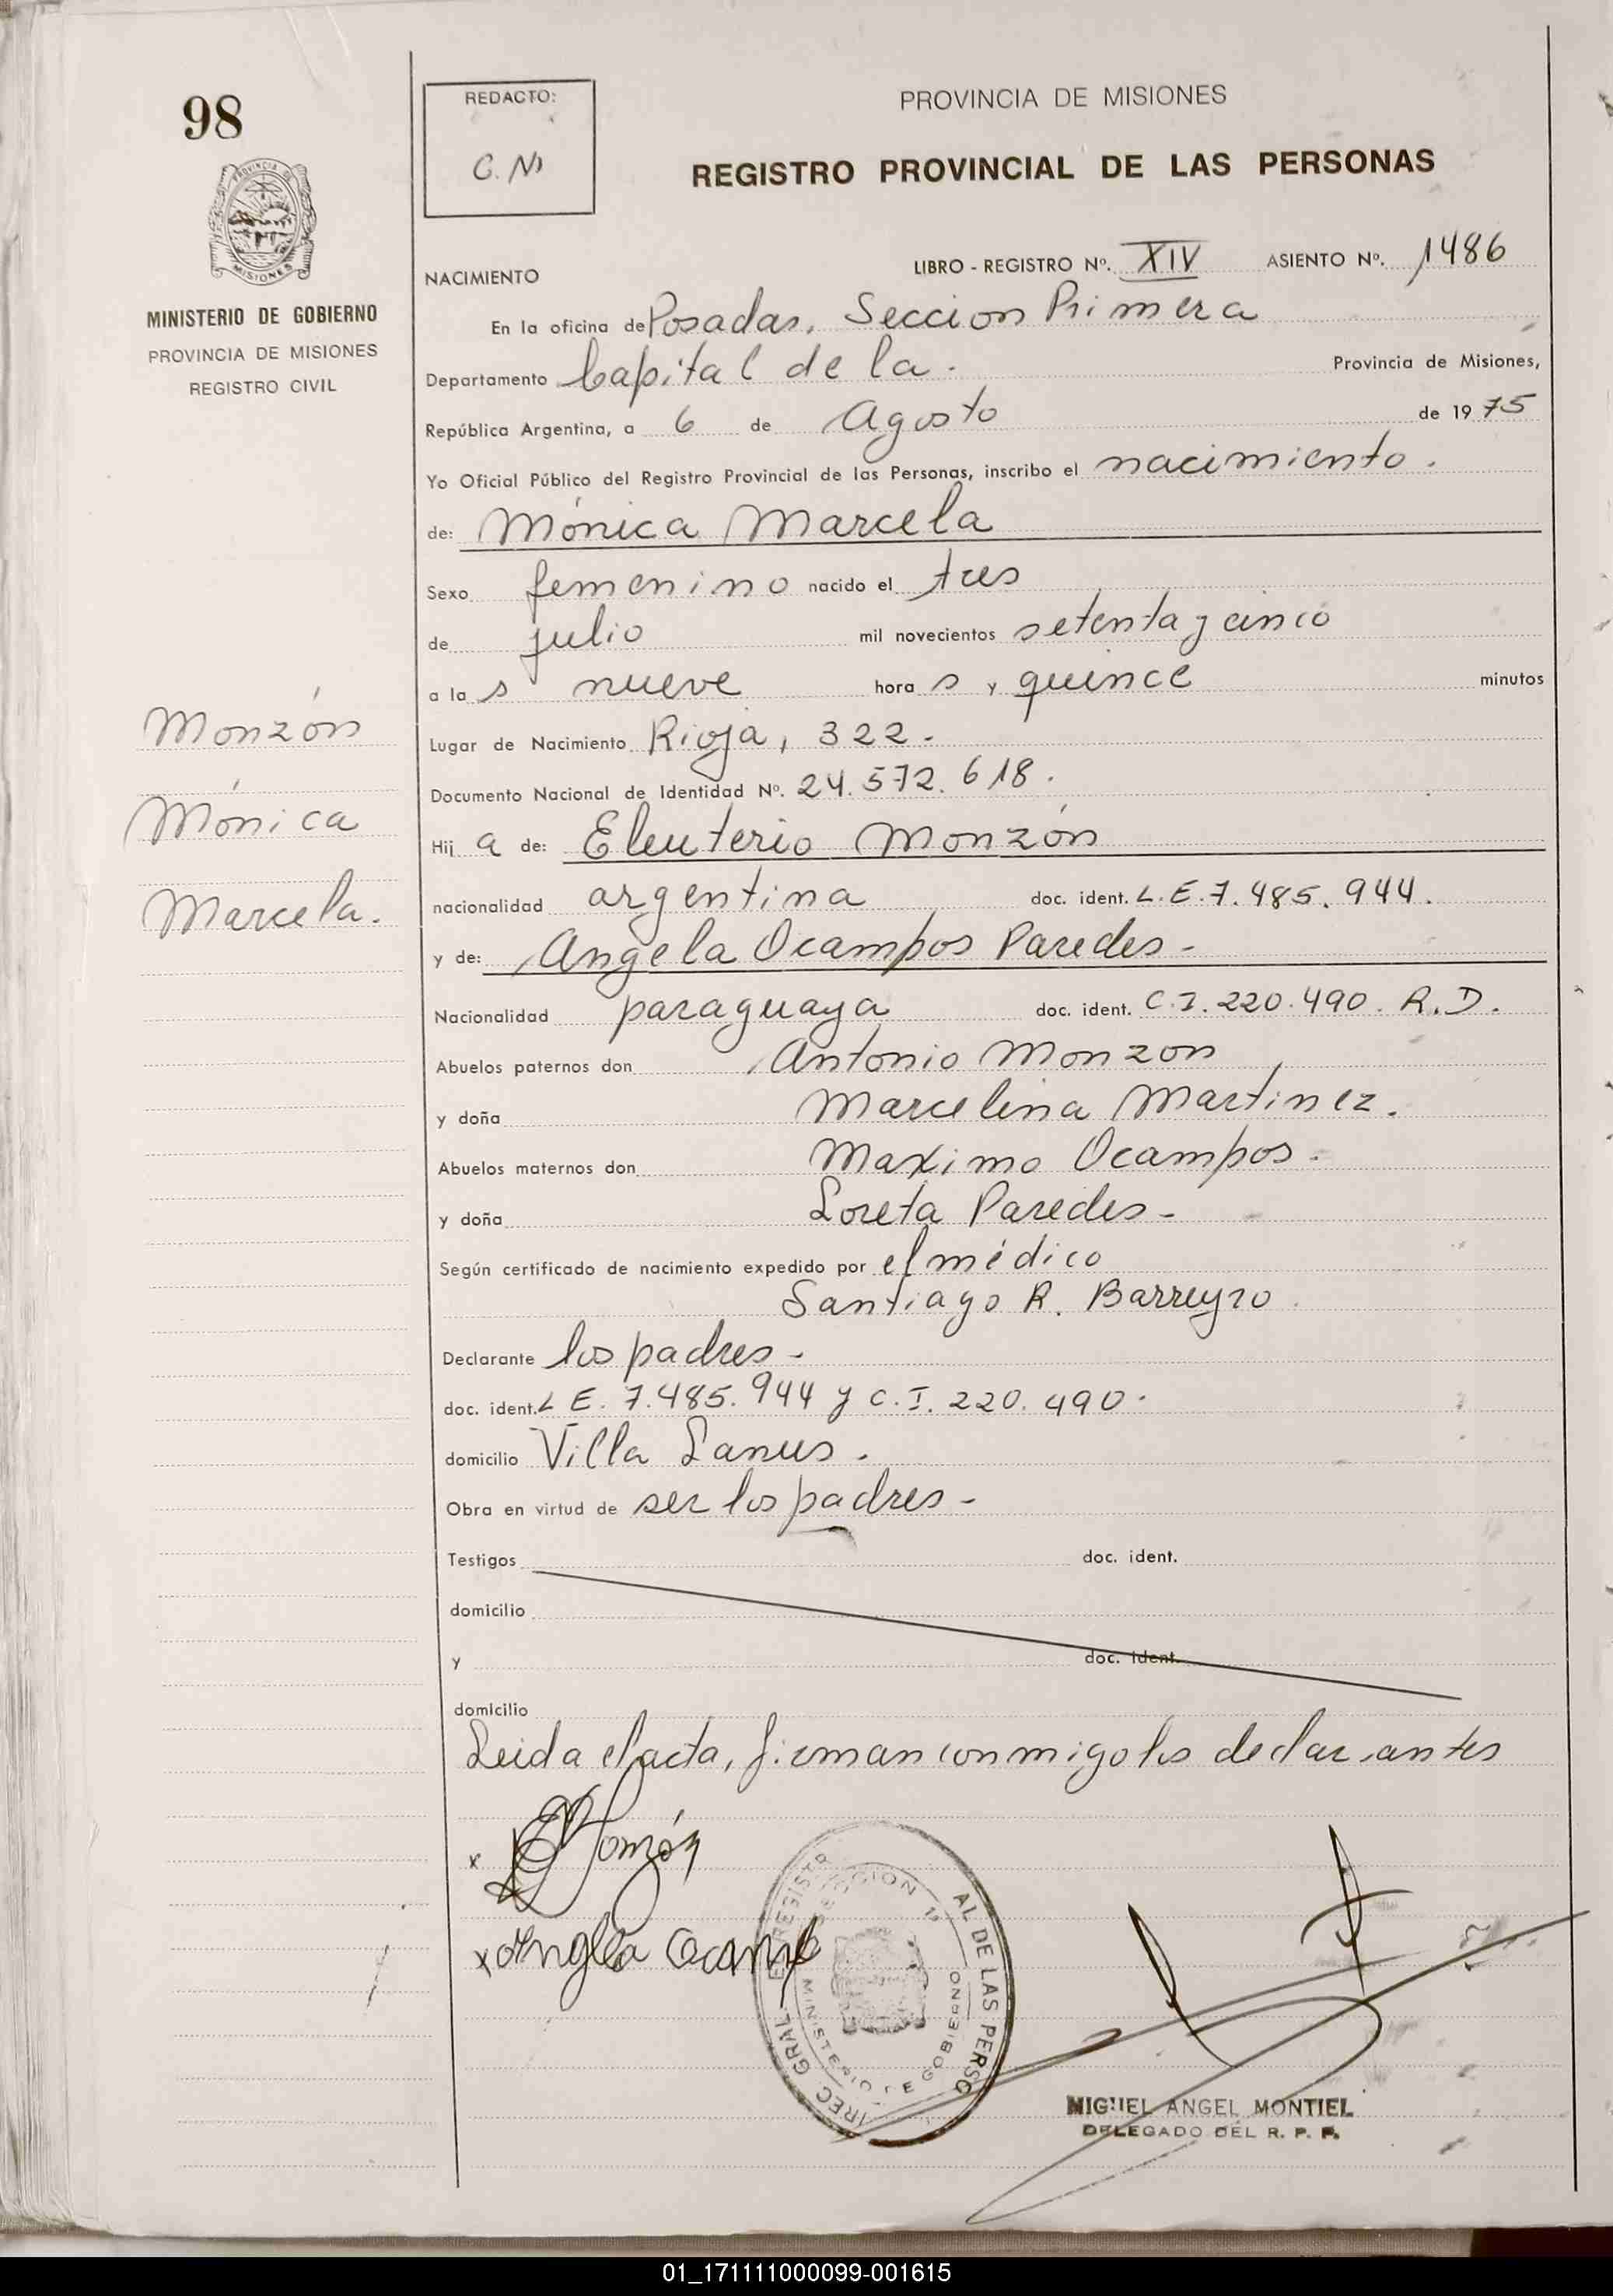 98
PROVINCIA DE
MISIONES
MINISTERIO DE GOBIERNO
PROVINCIA DE MISIONES
REGISTRO CIVIL
Monzón
Mónica
Marcela.
REDACTO:
PROVINCIA DE MISIONES
REGISTRO PROVINCIAL DE LAS PERSONAS
LIBRO - REGISTRO Nº. XIV ASIENTO Nº. 1486
NACIMIENTO
En la oficina de Posadas, Seccion Primera
Departamento Capital de la. Provincia de Misiones,
República Argentina, a 6 de Agosto de 1975
Yo Oficial Público del Registro Provincial de las Personas, inscribo el nacimiento.
de: Mónica Marcela
Sexo femenino nacido el tres
de julio mil novecientos setenta y cinco
a las nueve horas y quince minutos
Lugar de Nacimiento Rioja, 322.
Documento Nacional de Identidad Nº. 24.572.618.
Hija de: Eleuterio Monzón
nacionalidad argentina doc. ident. L.E.7.485.944.
y de: Angela Ocampos Paredes-
Nacionalidad paraguaya doc. ident. C.I. 220.490. R.D.
Abuelos paternos don Antonio Monzon
y doña Marcelina Martinez.
Abuelos maternos don Maximo Ocampos.
y doña Loreta Paredes-
Según certificado de nacimiento expedido por el médico
Santiago R. Barreyro.
Declarante los padres-
doc. ident. L E. 7.485.944 y C.I. 220.490.
domicilio Villa Lanus.
Obra en virtud de ser los padres-
Testigos doc. ident.
domicilio
y doc. ident.
domicilio
Leida el acta, firman conmigo los declarantes
x Monzón
x Angela
IREC. GRAL. REGISTR AL DE LAS PERSO
SECCION 1ª
MINISTERIO DE GOBIERNO
MIGUEL ANGEL MONTIEL
DELEGADO DEL R. P. P.
01_171111000099-001615